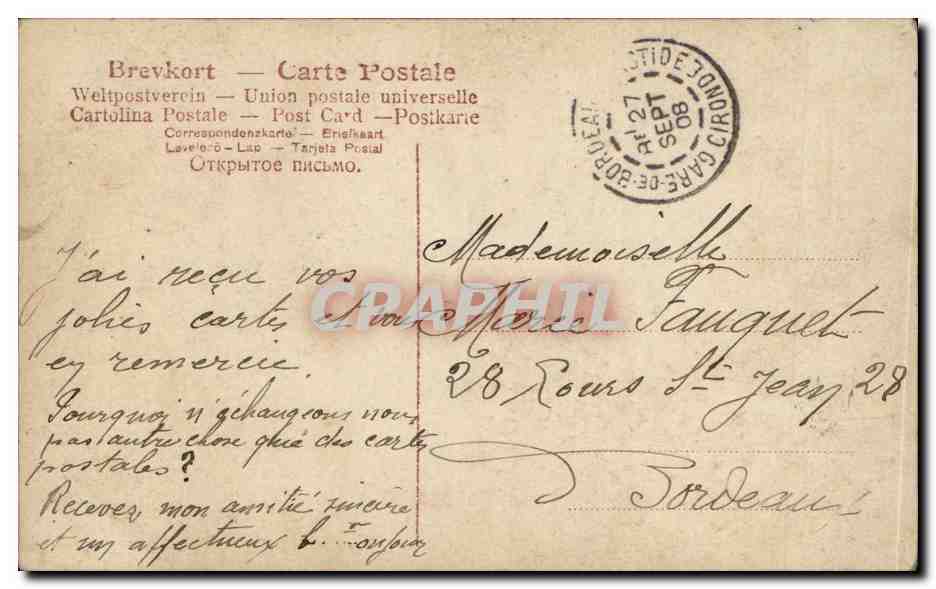 Brevkort — Carte Postale
Weltpostverein — Union postale universelle
Cartolina Postale — Post Card — Postkarte
Correspondenzkarte — Briefkaart
Levelező-Lap — Tarjeta Postal
Открытое письмо.
BORDEAUX BASTIDE
Rt 27
SEPT
08
GARE-DE-BORDEAUX
GIRONDE
J'ai reçu vos
jolies cartes et vous
en remercie.
Pourquoi n'échangeons nous
pas autre chose que des cartes
postales?
Recevez, mon amitié sincère
et un affectueux b....onjour
Mademoiselle
Marie Fauquet
28 Cours St Jean, 28
Bordeaux
CPAPHIL